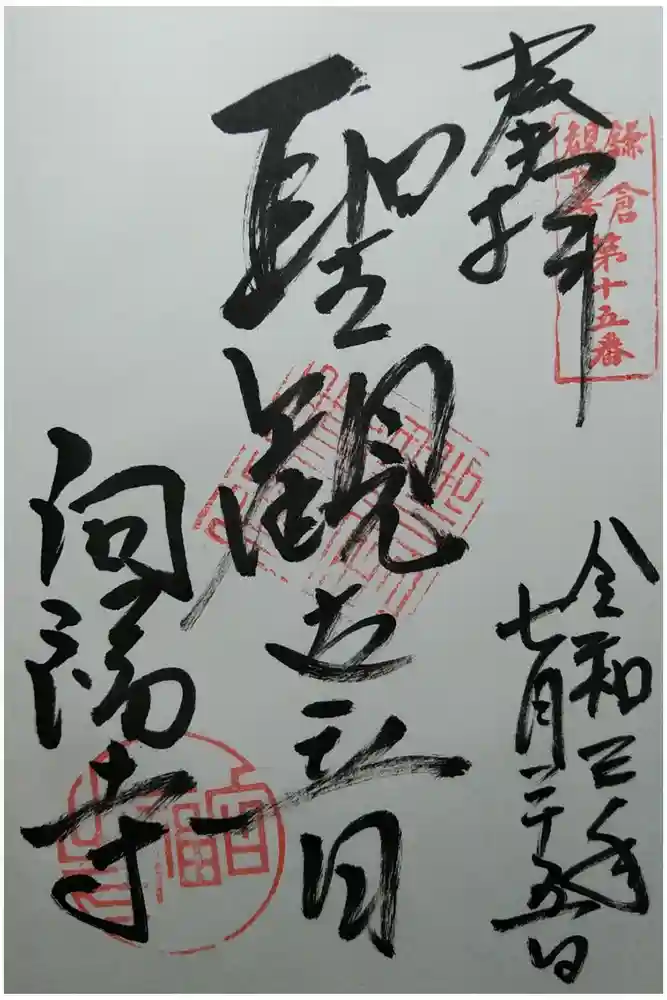 奉拝
鎌倉
観世音
第十五番
聖観世音
向福寺
令和三年
七月二十五日